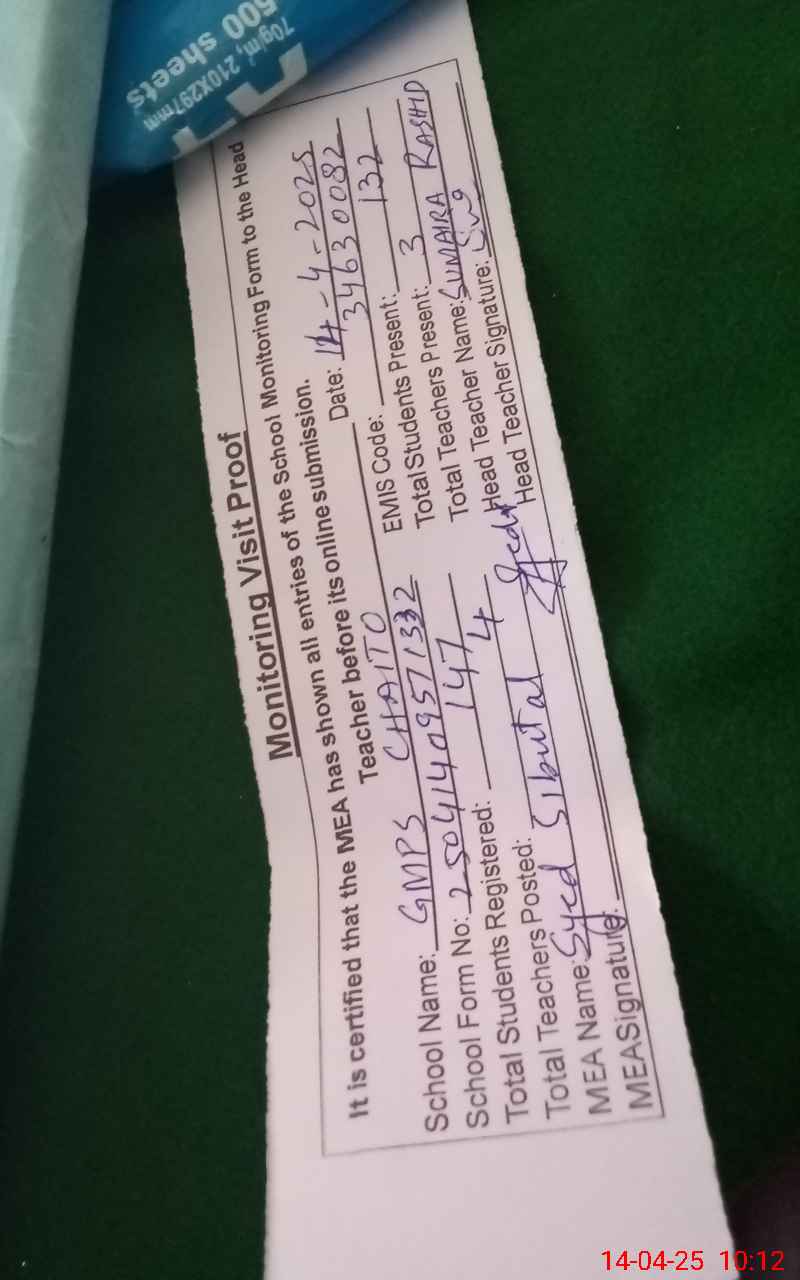 500 sheets
70g/m², 210X297mm
A4
Monitoring Visit Proof
It is certified that the MEA has shown all entries of the School Monitoring Form to the Head
Teacher before its online submission.
Date: 14-4-2025
School Name: GMPS CHAITO
EMIS Code: 34630082
School Form No: 25041409571332
Total Students Present: 132
Total Students Registered: 147
Total Teachers Present: 3
Total Teachers Posted: 4
Head Teacher Name: SUMAIRA RASHID
MEA Name: Syed Sibutal
Head Teacher Signature:
MEA Signature:
14-04-25 10:12